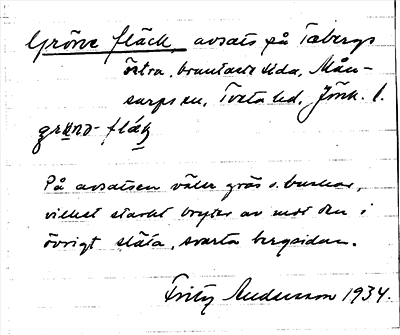 Gröne fläck, avsats på Tabergs
östra, brantaste sida, Mån-
sarps sn, Tveta hd, Jönk. l.
grɯnə- fläk
På avsatsen växer gräs o. buskar,
vilket starkt bryter av mot den i
övrigt släta, svarta bergsidan.
Fritz Andersson 1934.